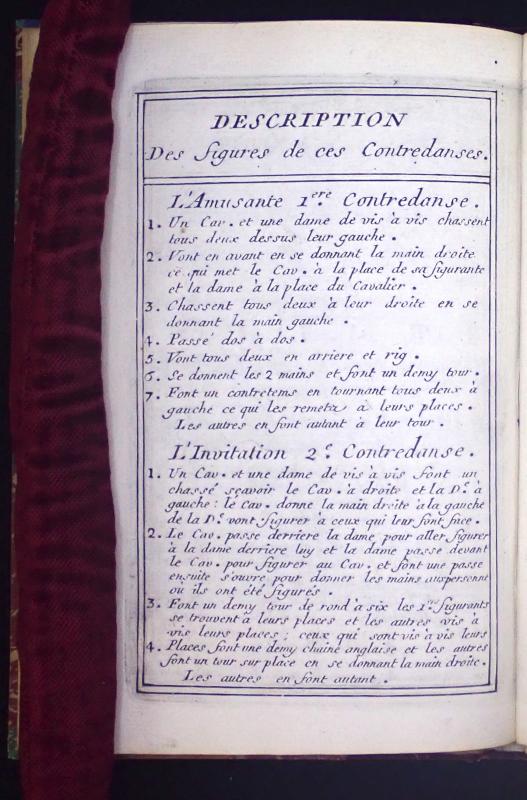 DESCRIPTION
Des figures de ces Contredanses.
L'Amusante 1ere. Contredanse.
1. Un Cav. et une dame de vis à vis chassent
tous deux dessus leur gauche.
2. Vont en avant en se donnant la main droite
ce qui met le Cav. à la place de sa figurante
et la dame à la place du Cavalier.
3. Chassent tous deux à leur droite en se
donnant la main gauche.
4. Passé dos à dos.
5. Vont tous deux en arriere et rig.
6. Se donnent les 2 mains et font un demy tour.
7. Font un contretems en tournant tous deux à
gauche ce qui les remet à leurs places.
Les autres en font autant à leur tour.
L'Invitation 2e. Contredanse.
1. Un Cav. et une dame de vis à vis font un
chassé sçavoir le Cav. à droite et la De. à
gauche: le Cav. donne la main droite à la gauche
de la De. vont figurer à ceux qui leur font face.
2. Le Cav. passe derriere la dame pour aller figurer
à la dame derriere luy et la dame passe devant
le Cav. pour figurer au Cav. et font une passe
ensuite s'ouvre pour donner les mains aux personnes
où ils ont été figurés.
3. Font un demy tour de rond à six les 1ers figurants
se trouvent à leurs places et les autres vis à
vis leurs places; ceux qui sont vis à vis leurs
4. Places font une demy chaîne anglaise et les autres
font un tour sur place en se donnant la main droite.
Les autres en font autant.